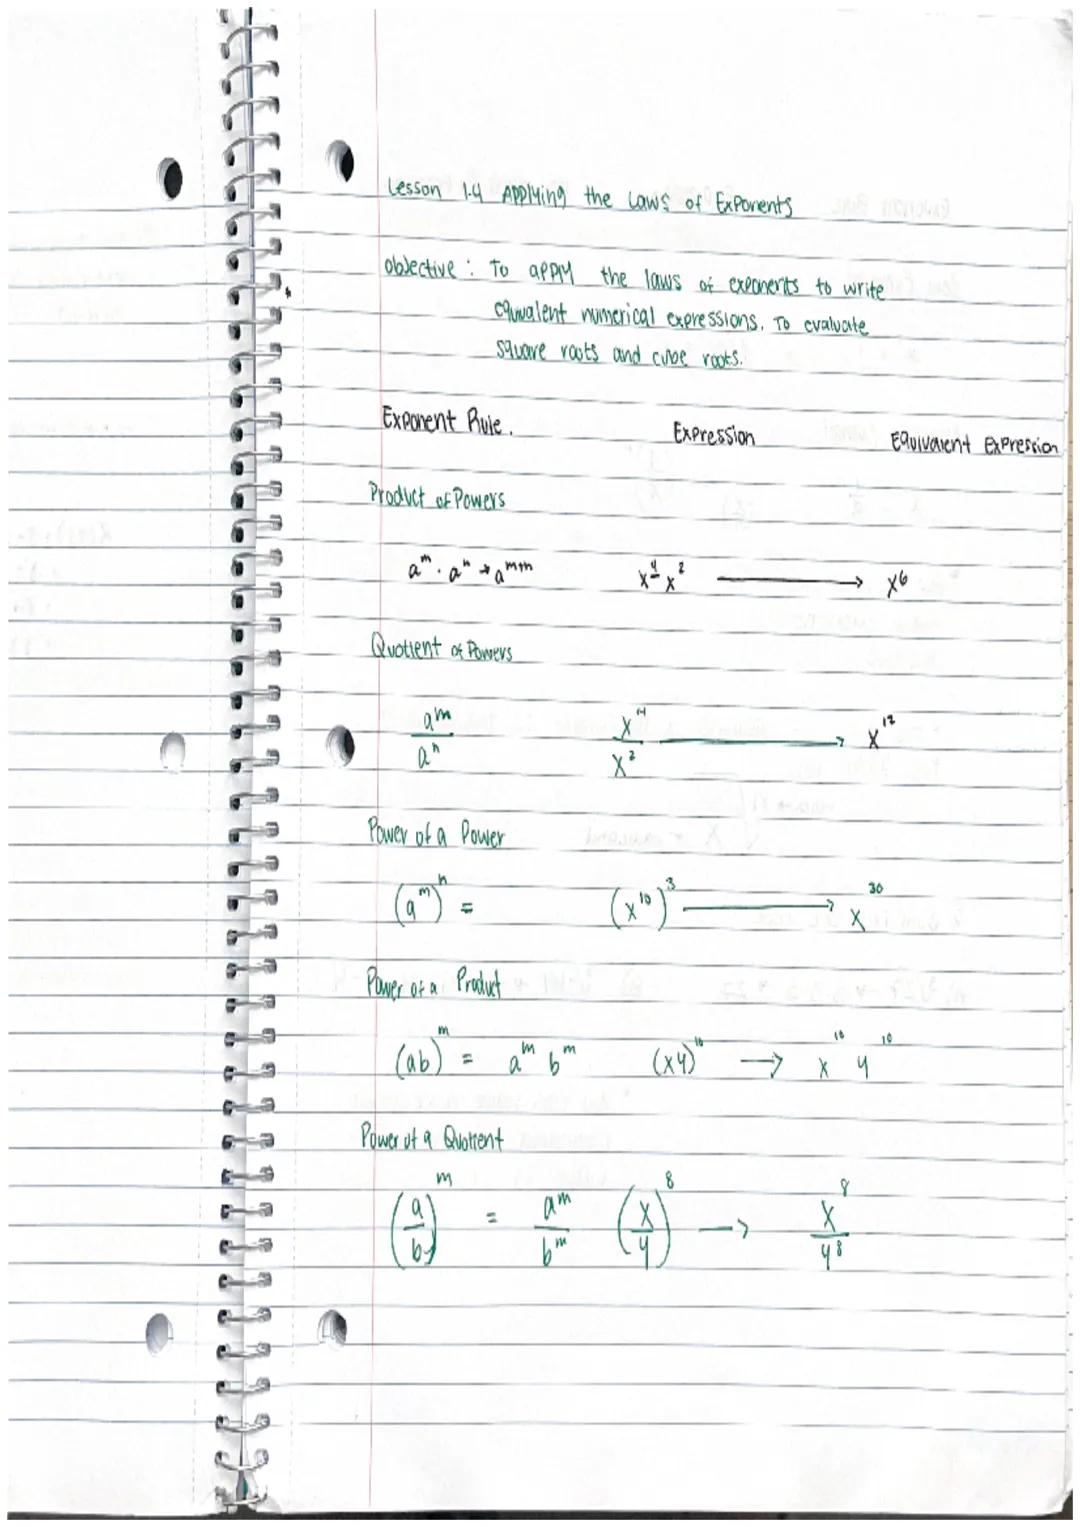 Lesson 1.4 Applying the Laws of Exponents
Objective : To apply the laws of exponents to write
equivalent numerical expressions. To evaluate
square roots and cube roots.
Exponent Rule. Expression Equivalent Expression
Product of Powers
a^m · a^n → a^m+n x^4 · x^2 → x^6
Quotient of Powers
a^m / a^n x^14 / x^2 → x^12
Power of a Power
(a^m)^n = (x^10)^3 → x^30
Power of a Product
(ab)^m = a^m b^m (xy)^10 → x^10 y^10
Power of a Quotient
(a/b)^m = a^m / b^m (x/y)^8 → x^8 / y^8